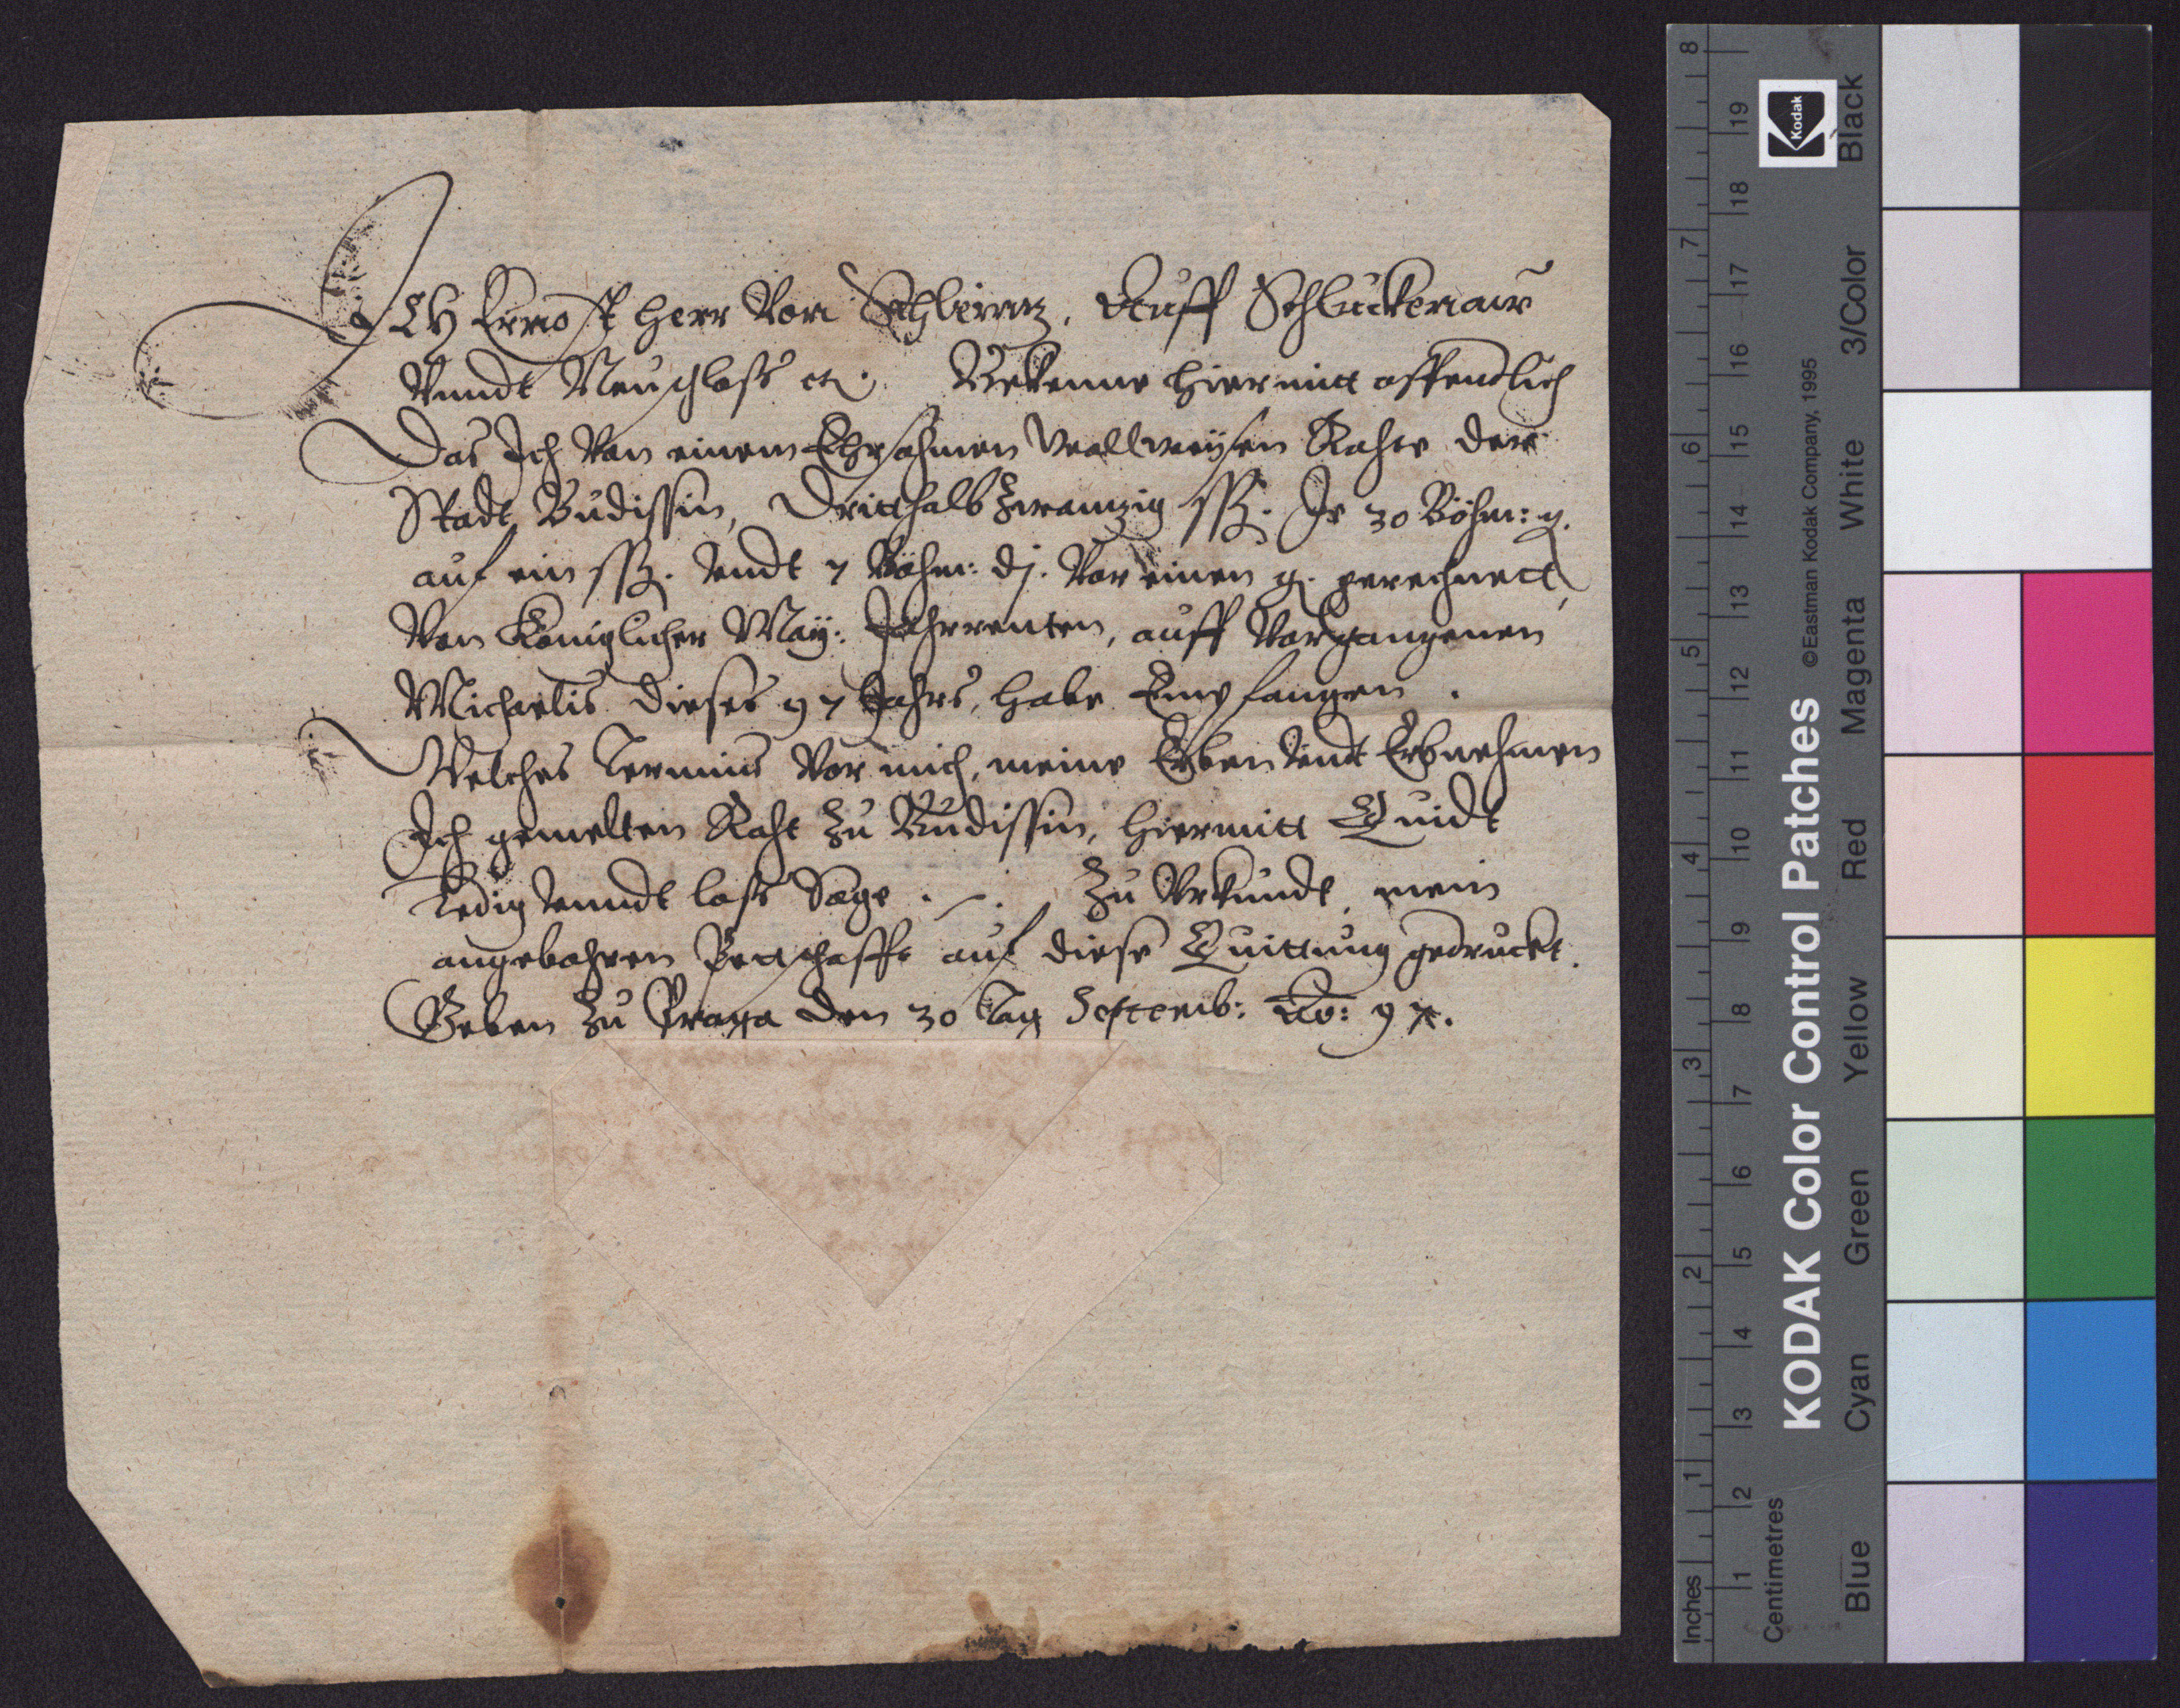 ICH Ernst Herr Von Schleinitz, Auff Schluckenaw
Vnndt Neuschloss etc. Bekenne hiermitt offendtlich
Das Ich Von einem Ehrsahmen Wollweysen Rahte der
Stadt Budissin, Dritthalb Zwanzig ßß. Je 30 Böhm: g.
auf ein ßß. Vndt 7 Böhm: dj. Vor einen g. gerechnett,
Von Königlicher May: Jahrrenten, auff Vorgangenen
Michaelis dieses 97 Jahrs, habe Empfangen.
Welches Termins Vor mich, meine Erben Vndt Erbnehmen
Ich gemelten Raht zu Budissin, hiermitt Quidt
Ledig Vnndt loss Sage. Zu Vrkundt, mein
angebohren Pettschafft auf diese Quittung gedruckt.
Geben zu Praga den 30 Tag Septemb: Ao: 97.
Inches 1 2 3 4 5 6 7 8
Centimetres 1 2 3 4 5 6 7 8 9 10 11 12 13 14 15 16 17 18 19
KODAK Color Control Patches ©Eastman Kodak Company, 1995
Kodak
Blue Cyan Green Yellow Red Magenta White 3/Color Black